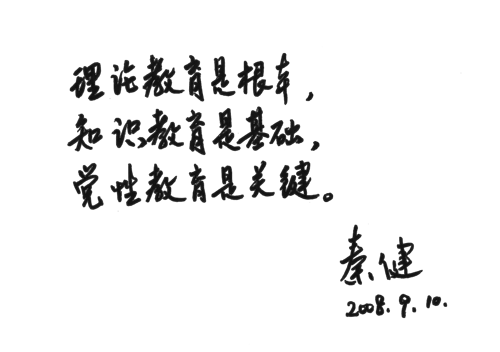 理论教育是根本，
知识教育是基础，
党性教育是关键。
秦健
2008.9.10.